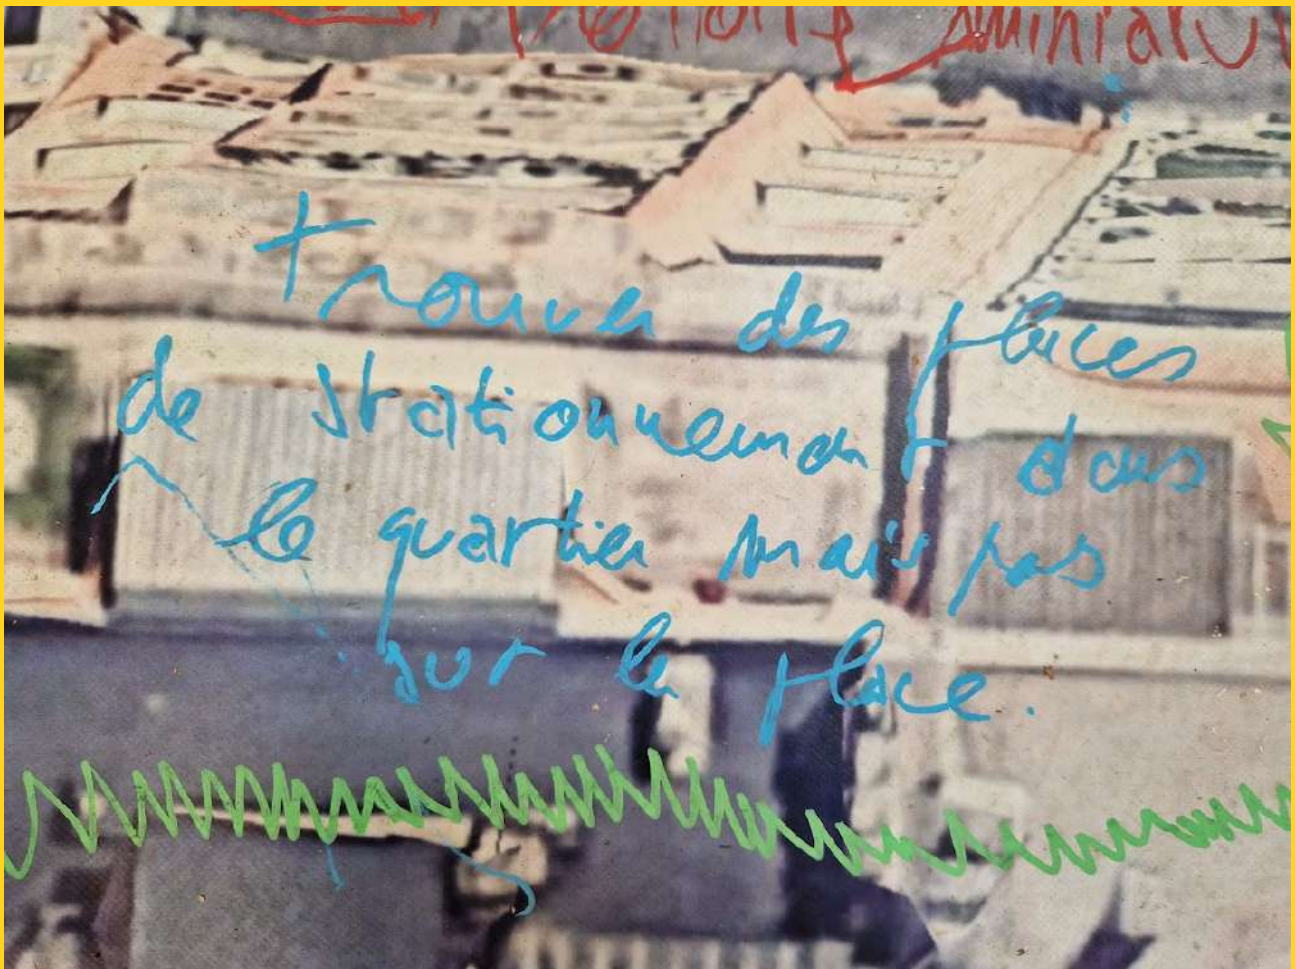 trouver des places
de stationnement dans
le quartier mais pas
sur la place.